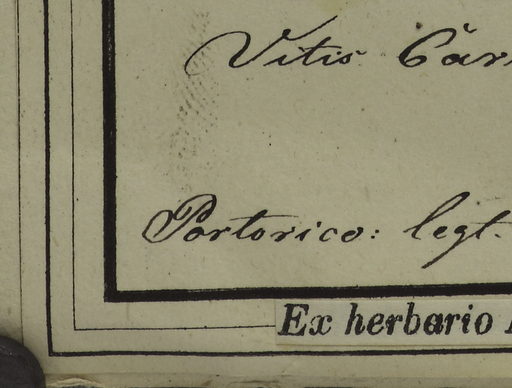 Vitis
Portorico: legt.
Ex herbario